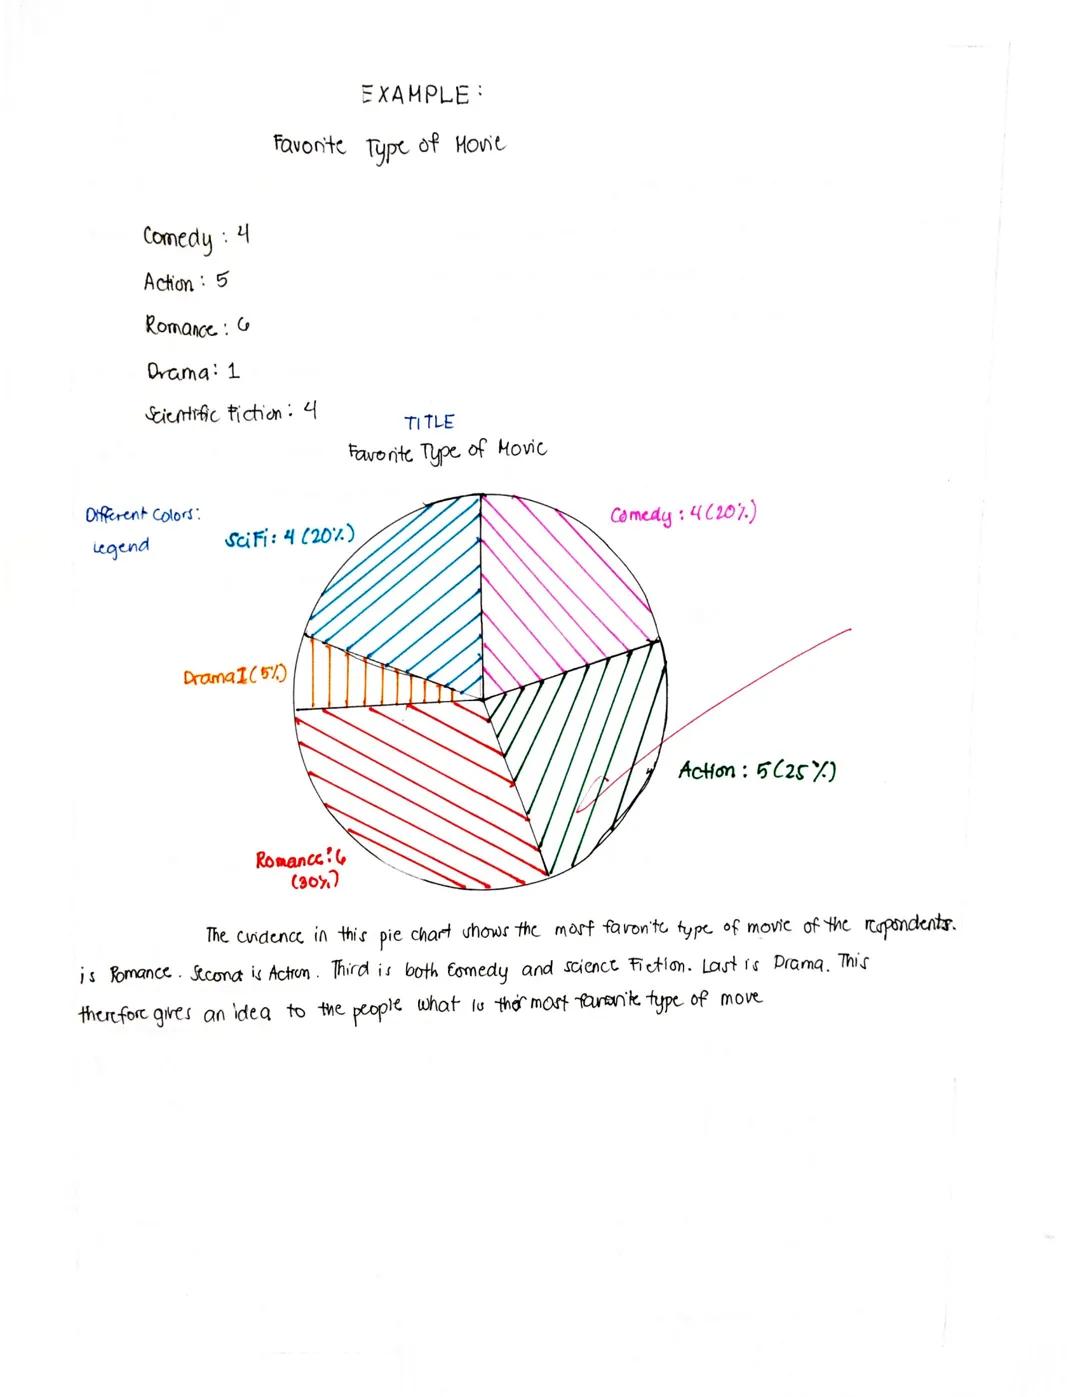 EXAMPLE:
Favorite Type of Movie
Comedy : 4
Action : 5
Romance : 6
Drama : 1
Scientific Fiction : 4
TITLE
Favorite Type of Movie
Different Colors:
Legend
SciFi : 4 (20%)
Comedy : 4 (20%)
Drama 1 (5%)
Action : 5 (25%)
Romance : 6
(30%)
The evidence in this pie chart shows the most favorite type of movie of the respondents.
is Romance. Second is Action. Third is both Comedy and science Fiction. Last is Drama. This
therefore gives an idea to the people what is most favorite type of move